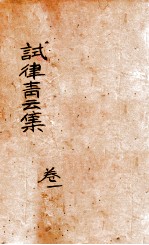 試律青云集
卷一